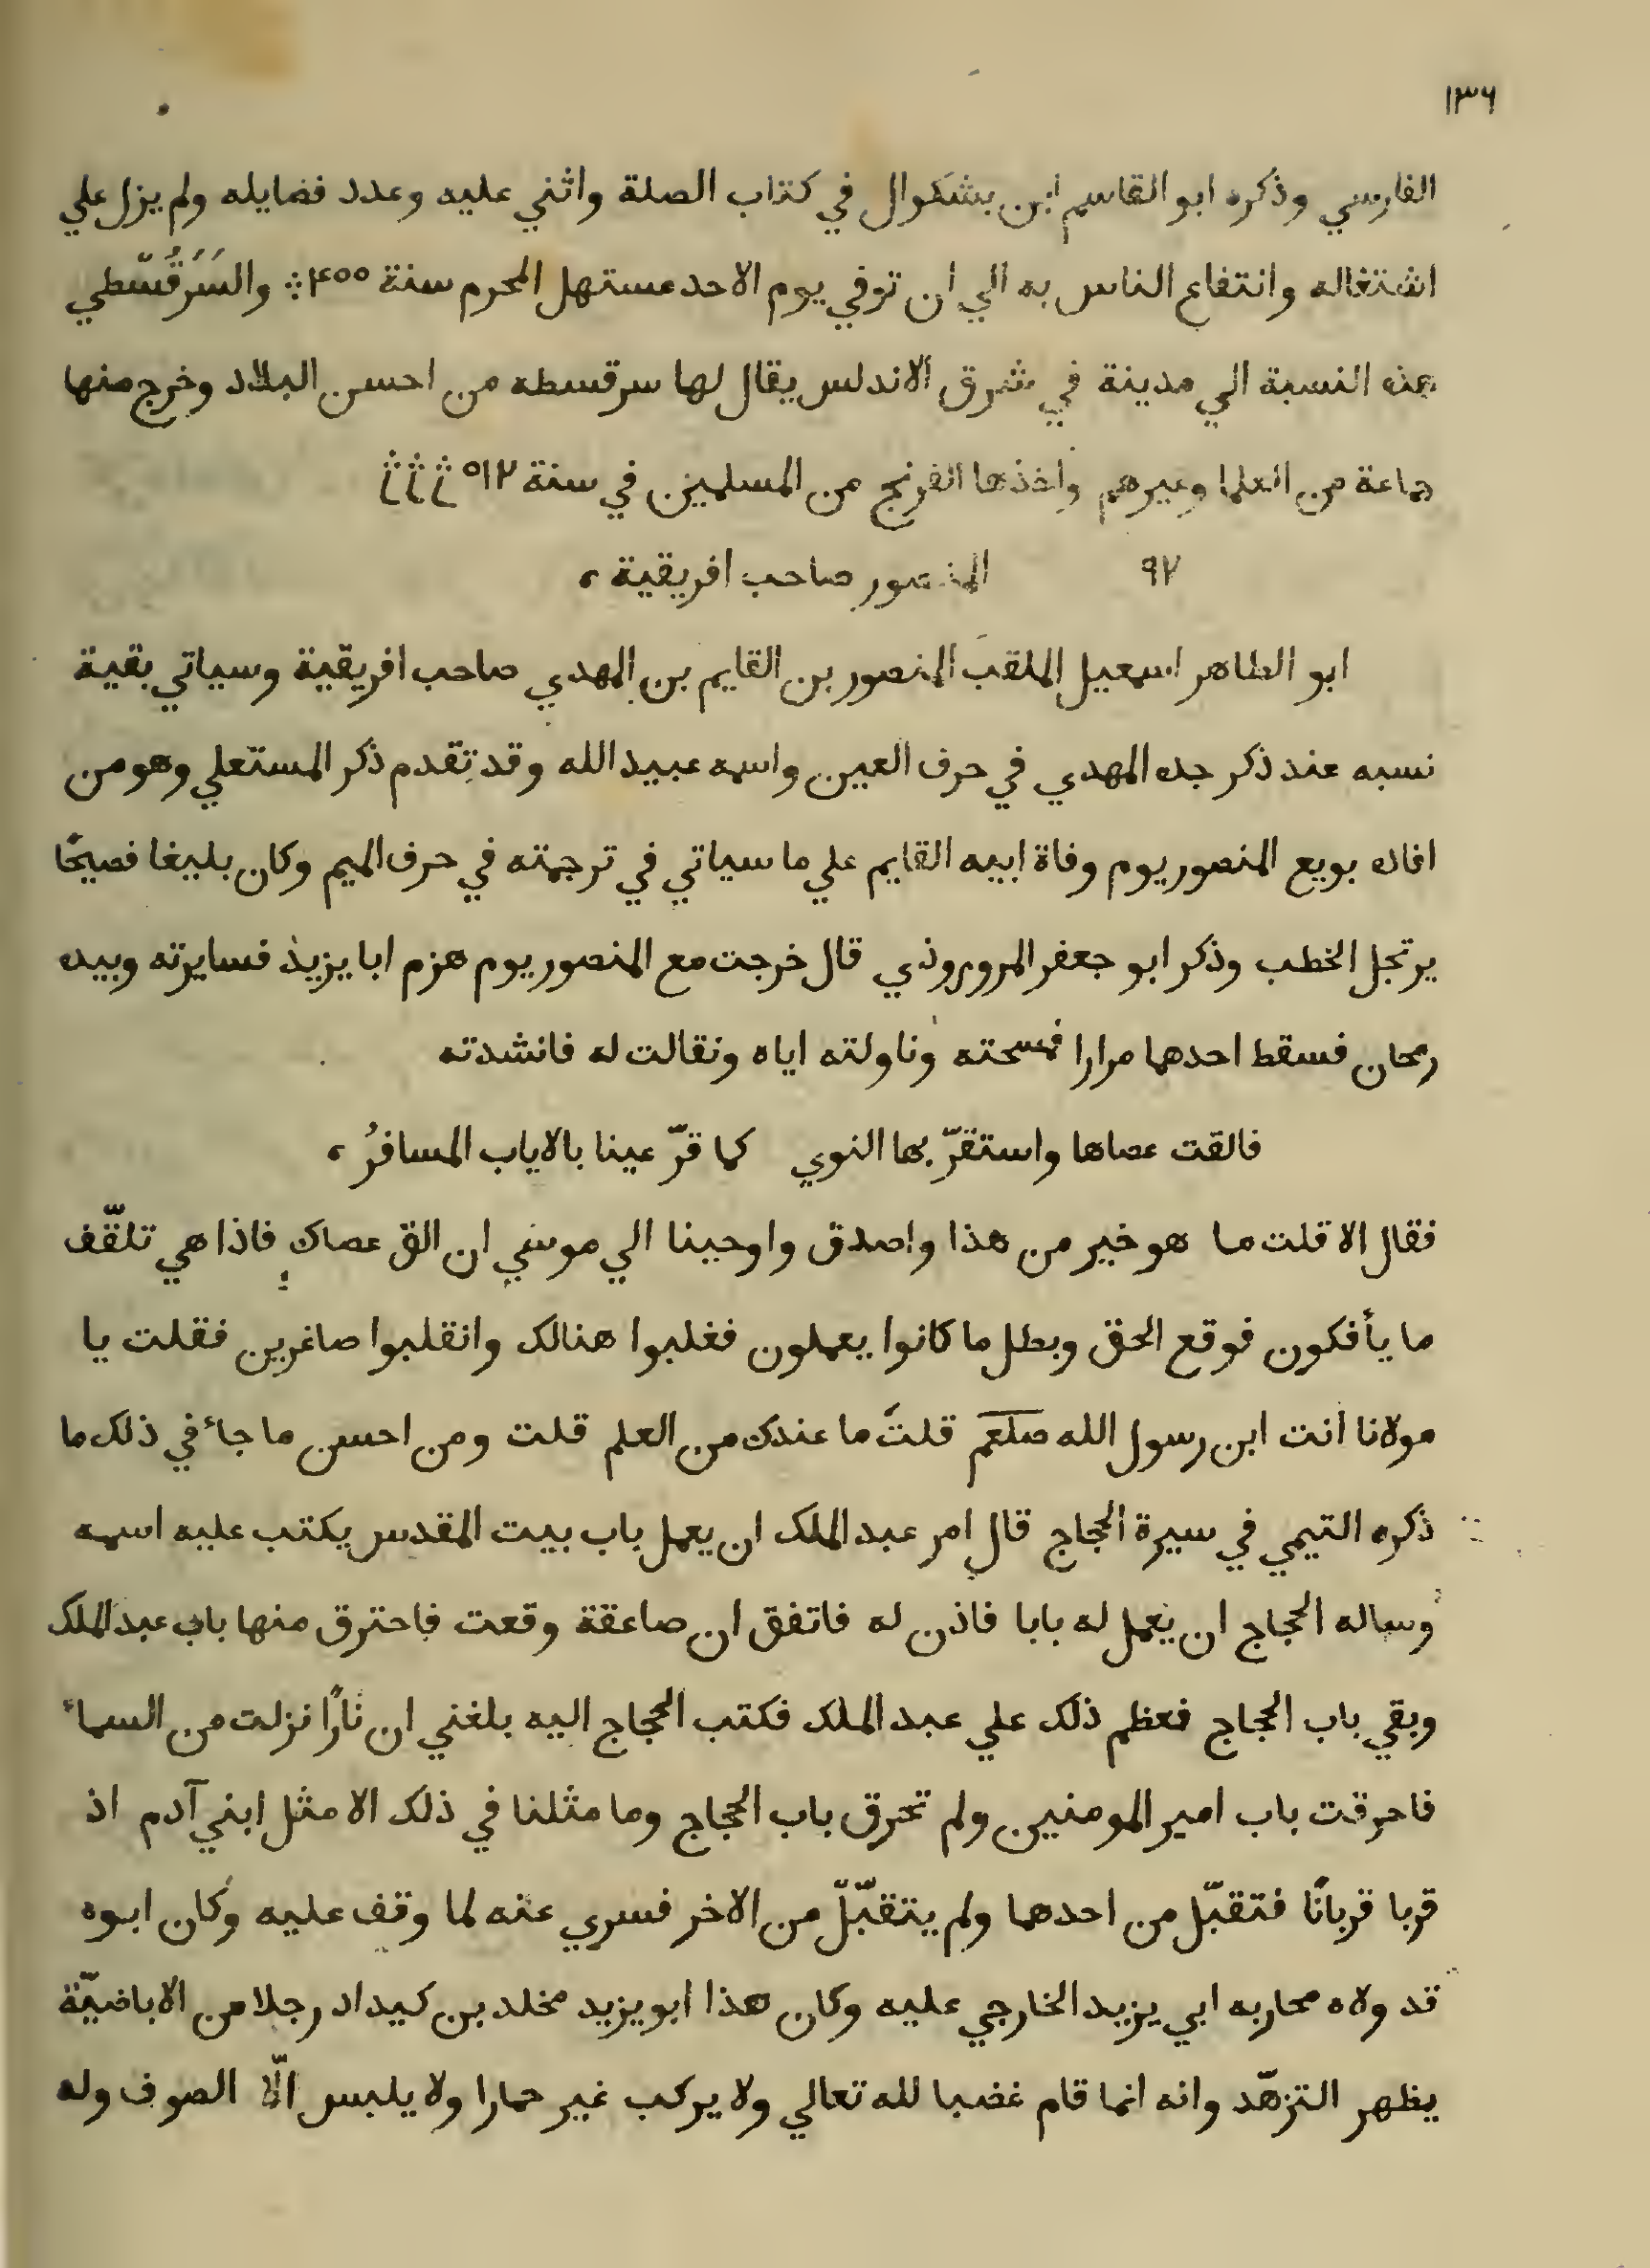 ١٣٦
الفارسي وذكره ابو القاسم ابن بشكوال في كتاب الصلة واثني عليه وعدد فضايله ولم يزل علي
اشتغاله وانتفاع الناس به الي ان توفي يوم الاحد مستهل المحرم سنة ۴٥٥ ؞ والسَرَقُسّطي
هذه النسبة الي مدينة في شرق الاندلس يقال لها سرقسطه من احسن البلاد وخرج منها
جماعة من العلما وغيرهم واخذها الفرنج من المسلمين في سنة ٥١٢
٩٢ المنصور صاحب افريقية ،
ابو الطاهر اسمعيل الملقب المنصور بن القايم بن المهدي صاحب افريقية وسياتي بقية
نسبه عند ذكر جده المهدي في حرف العين واسمه عبيد الله وقد تقدم ذكر المستعلي وهو من
افاده بويع المنصور يوم وفاة ابيه القايم علي ما سياتي في ترجمته في حرف الميم وكان بليغا فصيحًا
يرتجل الخطب وذكر ابو جعفر المروروذي قال خرجت مع المنصور يوم هزم ابا يزيد فسايرته وبيده
رمحان فسقط احدهما مرارا فمسحته وناولته اياه وتفالت له فانشدته
فالقت عصاها واستقرّ بها النوي كما قرّ عينا بالاياب المسافرُ ،
فقال الا قلت ما هو خير من هذا واصدق واوحينا الي موسي ان الق عصاك فاذا هي تلقّف
ما يأفكون فوقع الحق وبطل ما كانوا يعملون فغلبوا هنالك وانقلبوا صاغرين فقلت يا
مولانا انت ابن رسول الله صلعم قلتَ ما عندك من العلم قلت ومن احسن ما جاء في ذلك ما
ذكره التيمي في سيرة الحجاج قال امر عبد الملك ان يعمل باب بيت المقدس يكتب عليه اسمه
وساله الحجاج ان يعمل له بابا فاذن له فاتفق ان صاعقة وقعت فاحترق منها باب عبد الملك
وبقي باب الحجاج فعظم ذلك علي عبد الملك فكتب الحجاج اليه بلغني ان نارًا نزلت من السماء
فاحرقت باب امير المومنين ولم تحرق باب الحجاج وما مثلنا في ذلك الا مثل ابني آدم اذ
قربا قربانًا فتقبّل من احدهما ولم يتقبّلّ من الاخر فسري عنه لما وقف عليه وكان ابوه
قد ولاه محاربه ابي يزيد الخارجي عليه وكان هذا ابو يزيد مخلد بن كيداد رجلا من الاباضيّة
يظهر التزهّد وانه انما قام غضبا لله تعالي ولا يركب غير حمارا ولا يلبس الّا الصوف وله